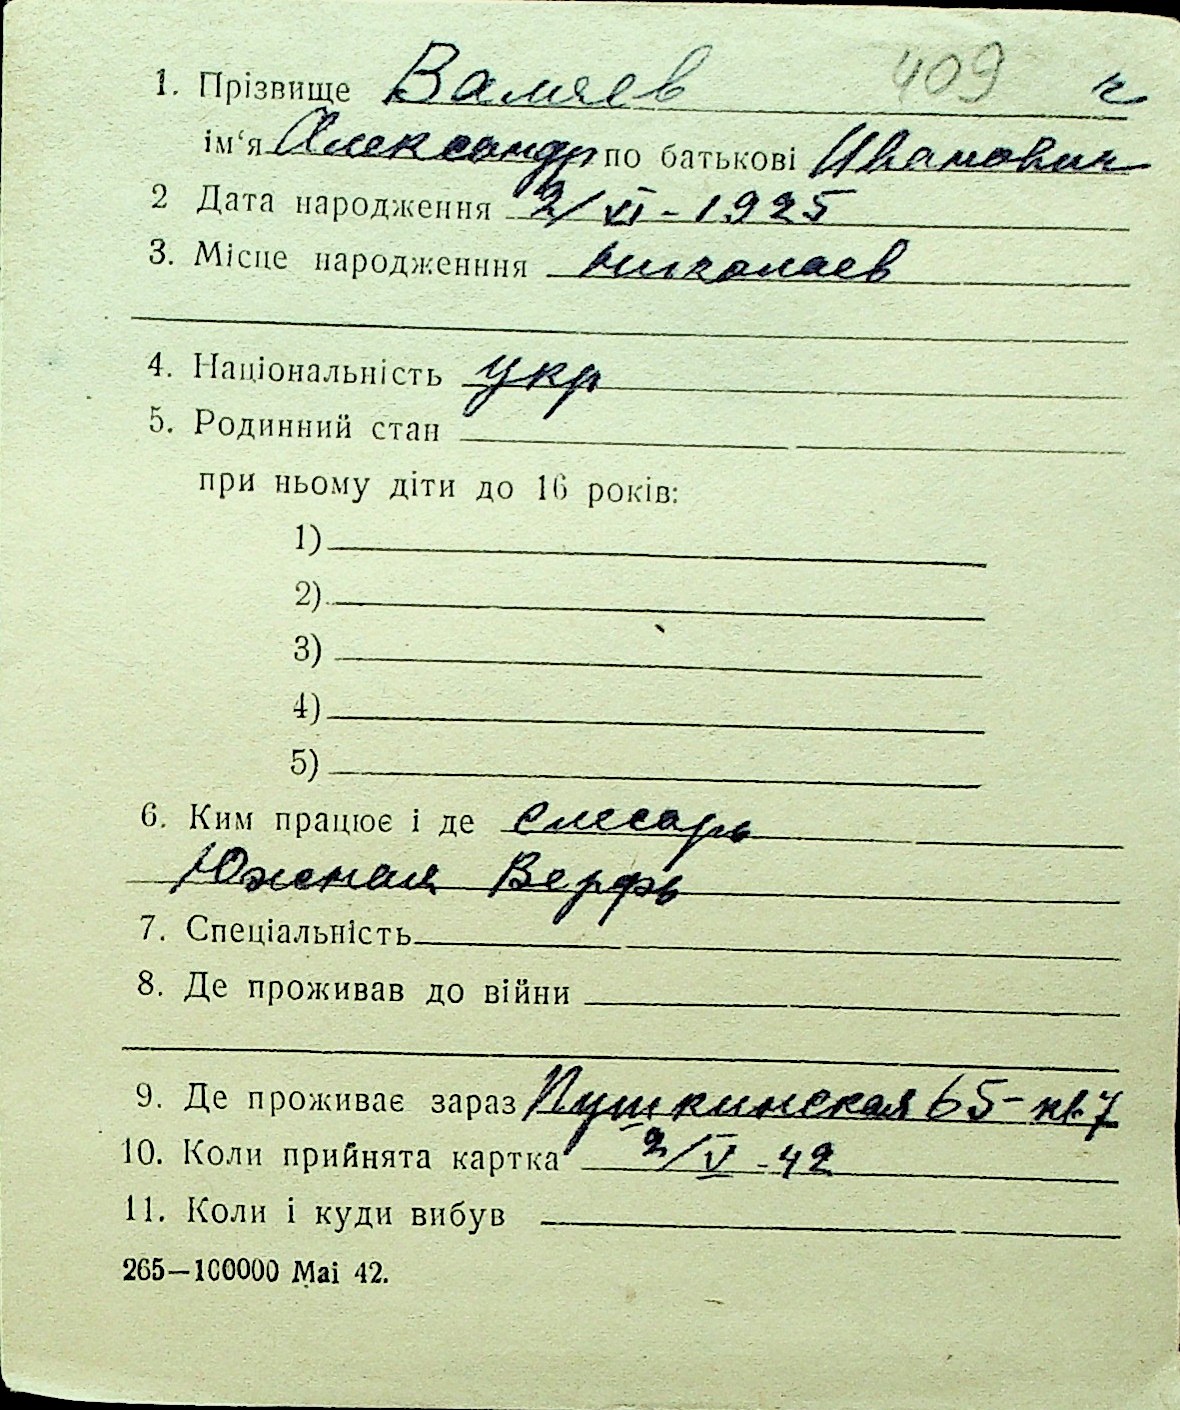 1. Прізвище Валяев 409 ч
ім'я Александр по батькові Иванович
2 Дата народження 2/VI - 1925
3. Місце народженння Николаев
4. Національність укр
5. Родинний стан
при ньому діти до 16 років:
1)
2)
3)
4)
5)
6. Ким працює і де слесарь
Южная Верфь
7. Спеціальність
8. Де проживав до війни
9. Де проживає зараз Пушкинская 65 - кв. 7
10. Коли прийнята картка 2/V - 42
11. Коли і куди вибув
265—100000 Mai 42.